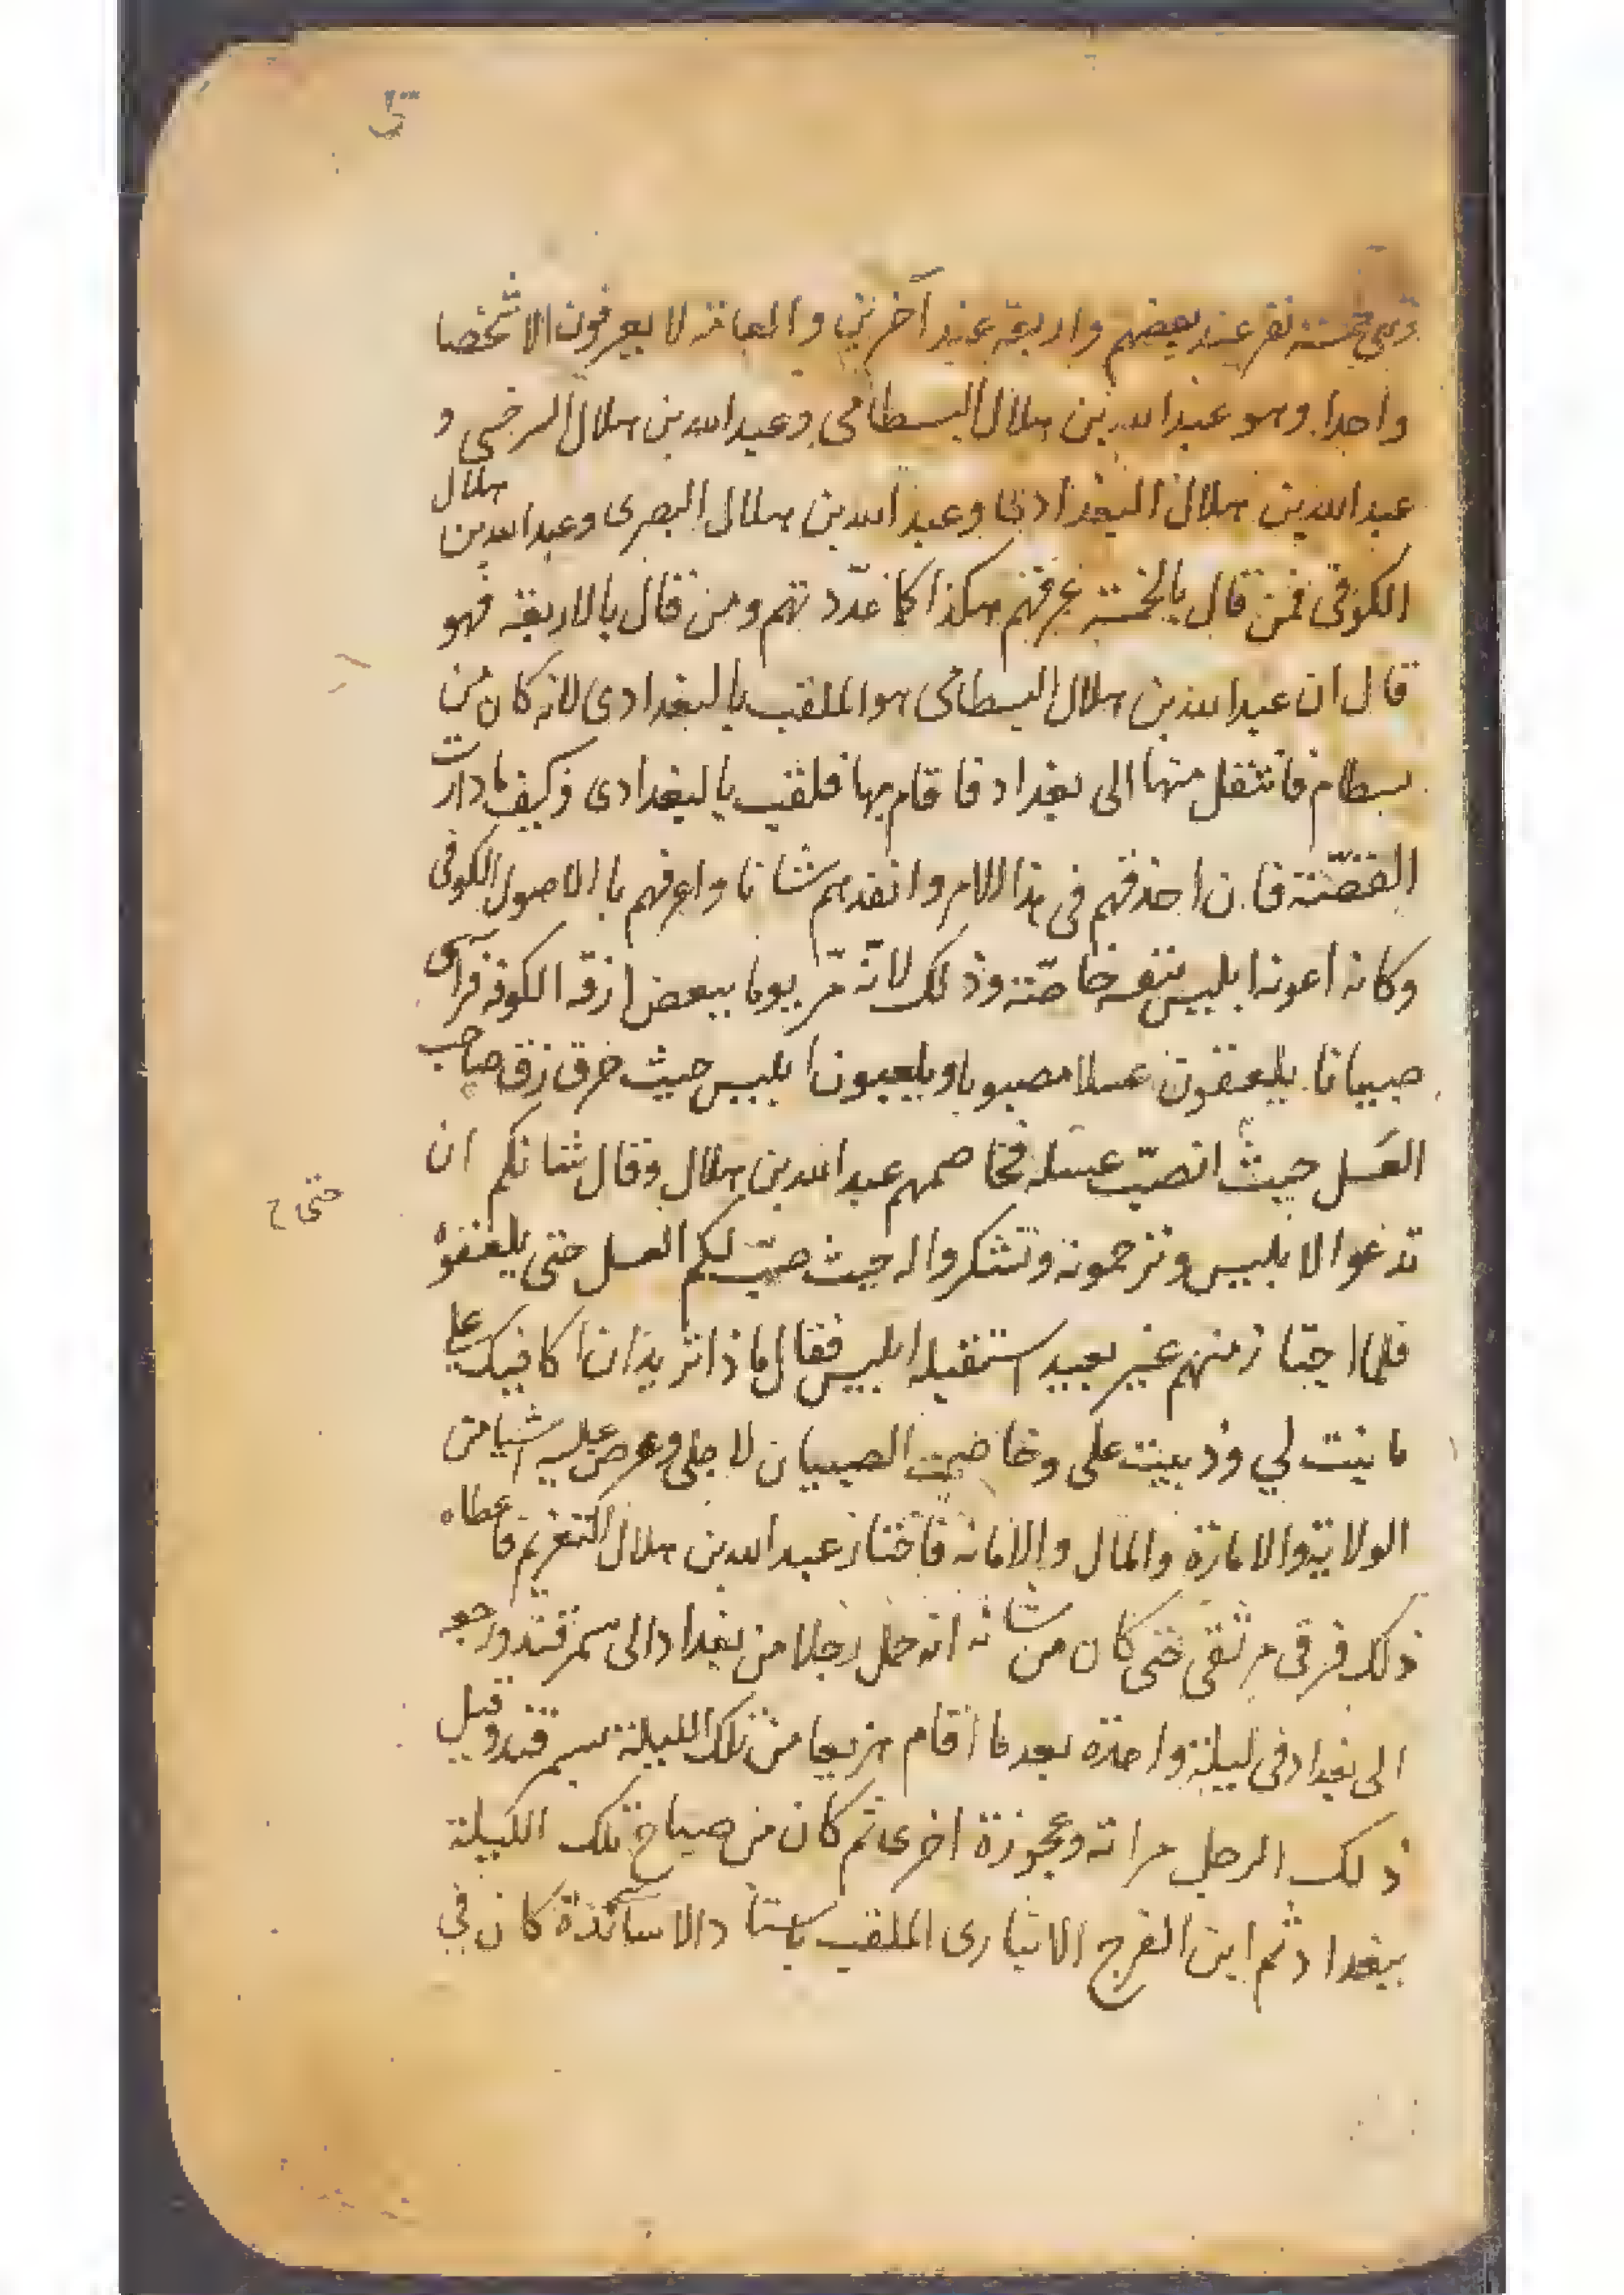 خمسة نفر عند بعضهم واربعة عند آخرين والعامة لا يعرفون الا شخصا
واحدا وهو عبد الله بن هلال البسطامى وعبد الله بن هلال الرخسى و
عبد الله بن هلال البغدادى وعبد الله بن هلال البصرى وعبد الله بن هلال
الكوفى فمن قال بالخمسة عرفهم هكذا كما عدّدتهم ومن قال بالاربعة فهو
قال ان عبد الله بن هلال البسطامى هو الملقب بالبغدادى لانه كان من
بسطام فانتقل منها الى بغداد فاقام بها فلقب بالبغدادى وكيف ما دارت
القصّة فان احذقهم فى هذا الامر وانفذهم شانا واعرفهم باالاصول الكوفى
وكانه اعونه ابليس بنفسه خاصّة وذلك لانّه مرّ يوما ببعض ازقه الكوفه فرآى
صبيانا يلعقون عسلا مصبوبا ويلعبون ابليس حيث خرق زق صاحب
العسل حيث انصبّ عسله فخاصمهم عبد الله بن هلال وقال شانكم ان
تدعوا لابليس وترحمونه وتشكروا له حيث صبّ لكم العسل حتى يلعقوا
حتى ح
فلما اجتاز منهم غير بعيد استقبله ابليس فقال ماذا تريد ان اكافيك على
ما بنت لي وذببت على وخاصمت الصبيان لاجلى وعرض عليه اشيا من
الولاية والامارة والمال والامانه فاختار عبد الله بن هلال التعزيم فاعطاه
ذلك فرقى مرتقى حتى كان من شانه انه حمل رجلا من بغداد الى سمرقند ورجعه
الى بغداد فى ليلة واحدة بعد ما اقام هزيعا من تلك الليلة بسمرقند وقبل
ذلك الرجل مراته وعجوزة اخرى ثم كان من صباح تلك الليلة
ببغداد ثم ابن الفرج الانبارى الملقب باستاد الاساتذة كان في